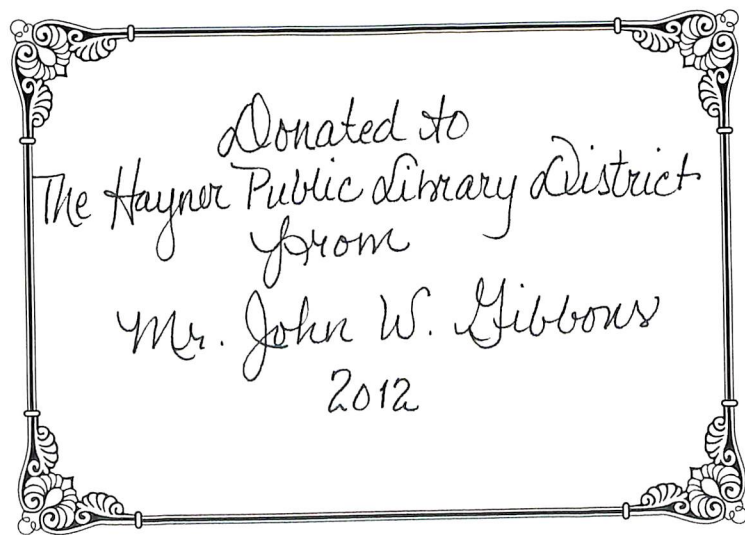 Donated to
The Hayner Public Library District
from
Mr. John W. Gibbons
2012